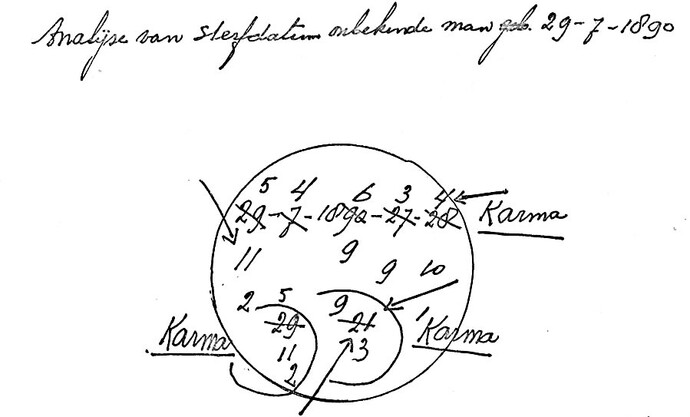 Analyse van sterfdatum onbekende man geb. 29-7-1890
5 4 6 3 4
29-7-1890-27-28 Karma
11 9
9 10
2 5 9 21 Karma
Karma 29
11 3
2